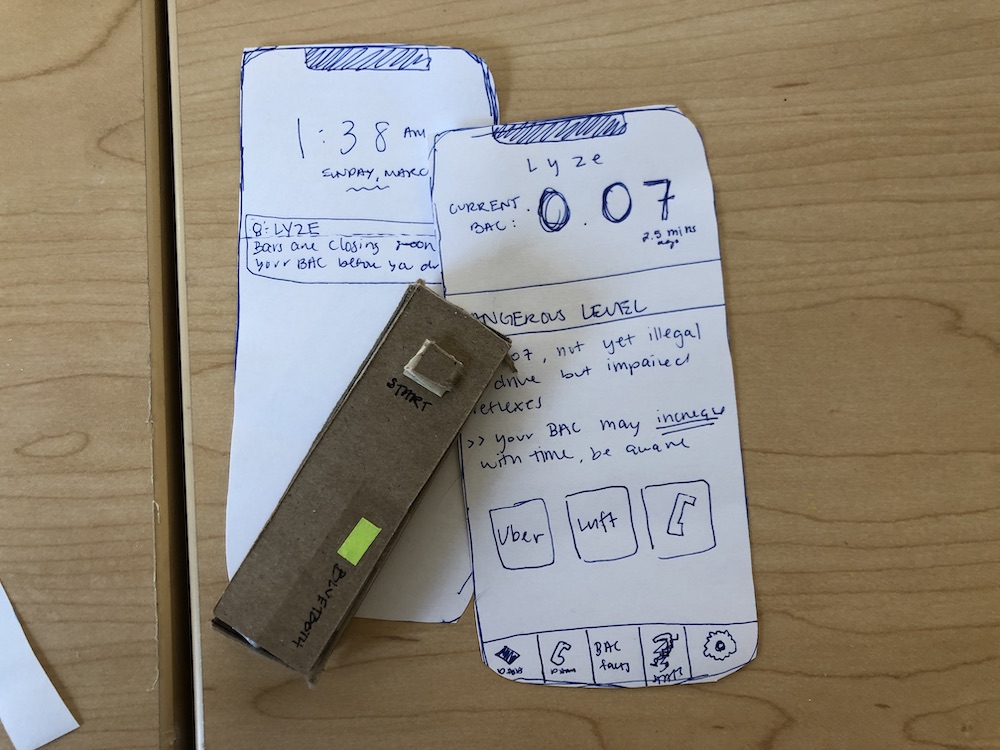 1:38 AM
SUNDAY, MARC
LYZE
Bars are closing soon
your BAC before you dr
Lyze
CURRENT BAC: 0.07
2.5 mins ago
ANGEROUS LEVEL
07, not yet illegal
drive but impaired
reflexes
>> your BAC may increase
with time, be aware
Uber
Lyft
BAC
facts
START
BLUETOOTH